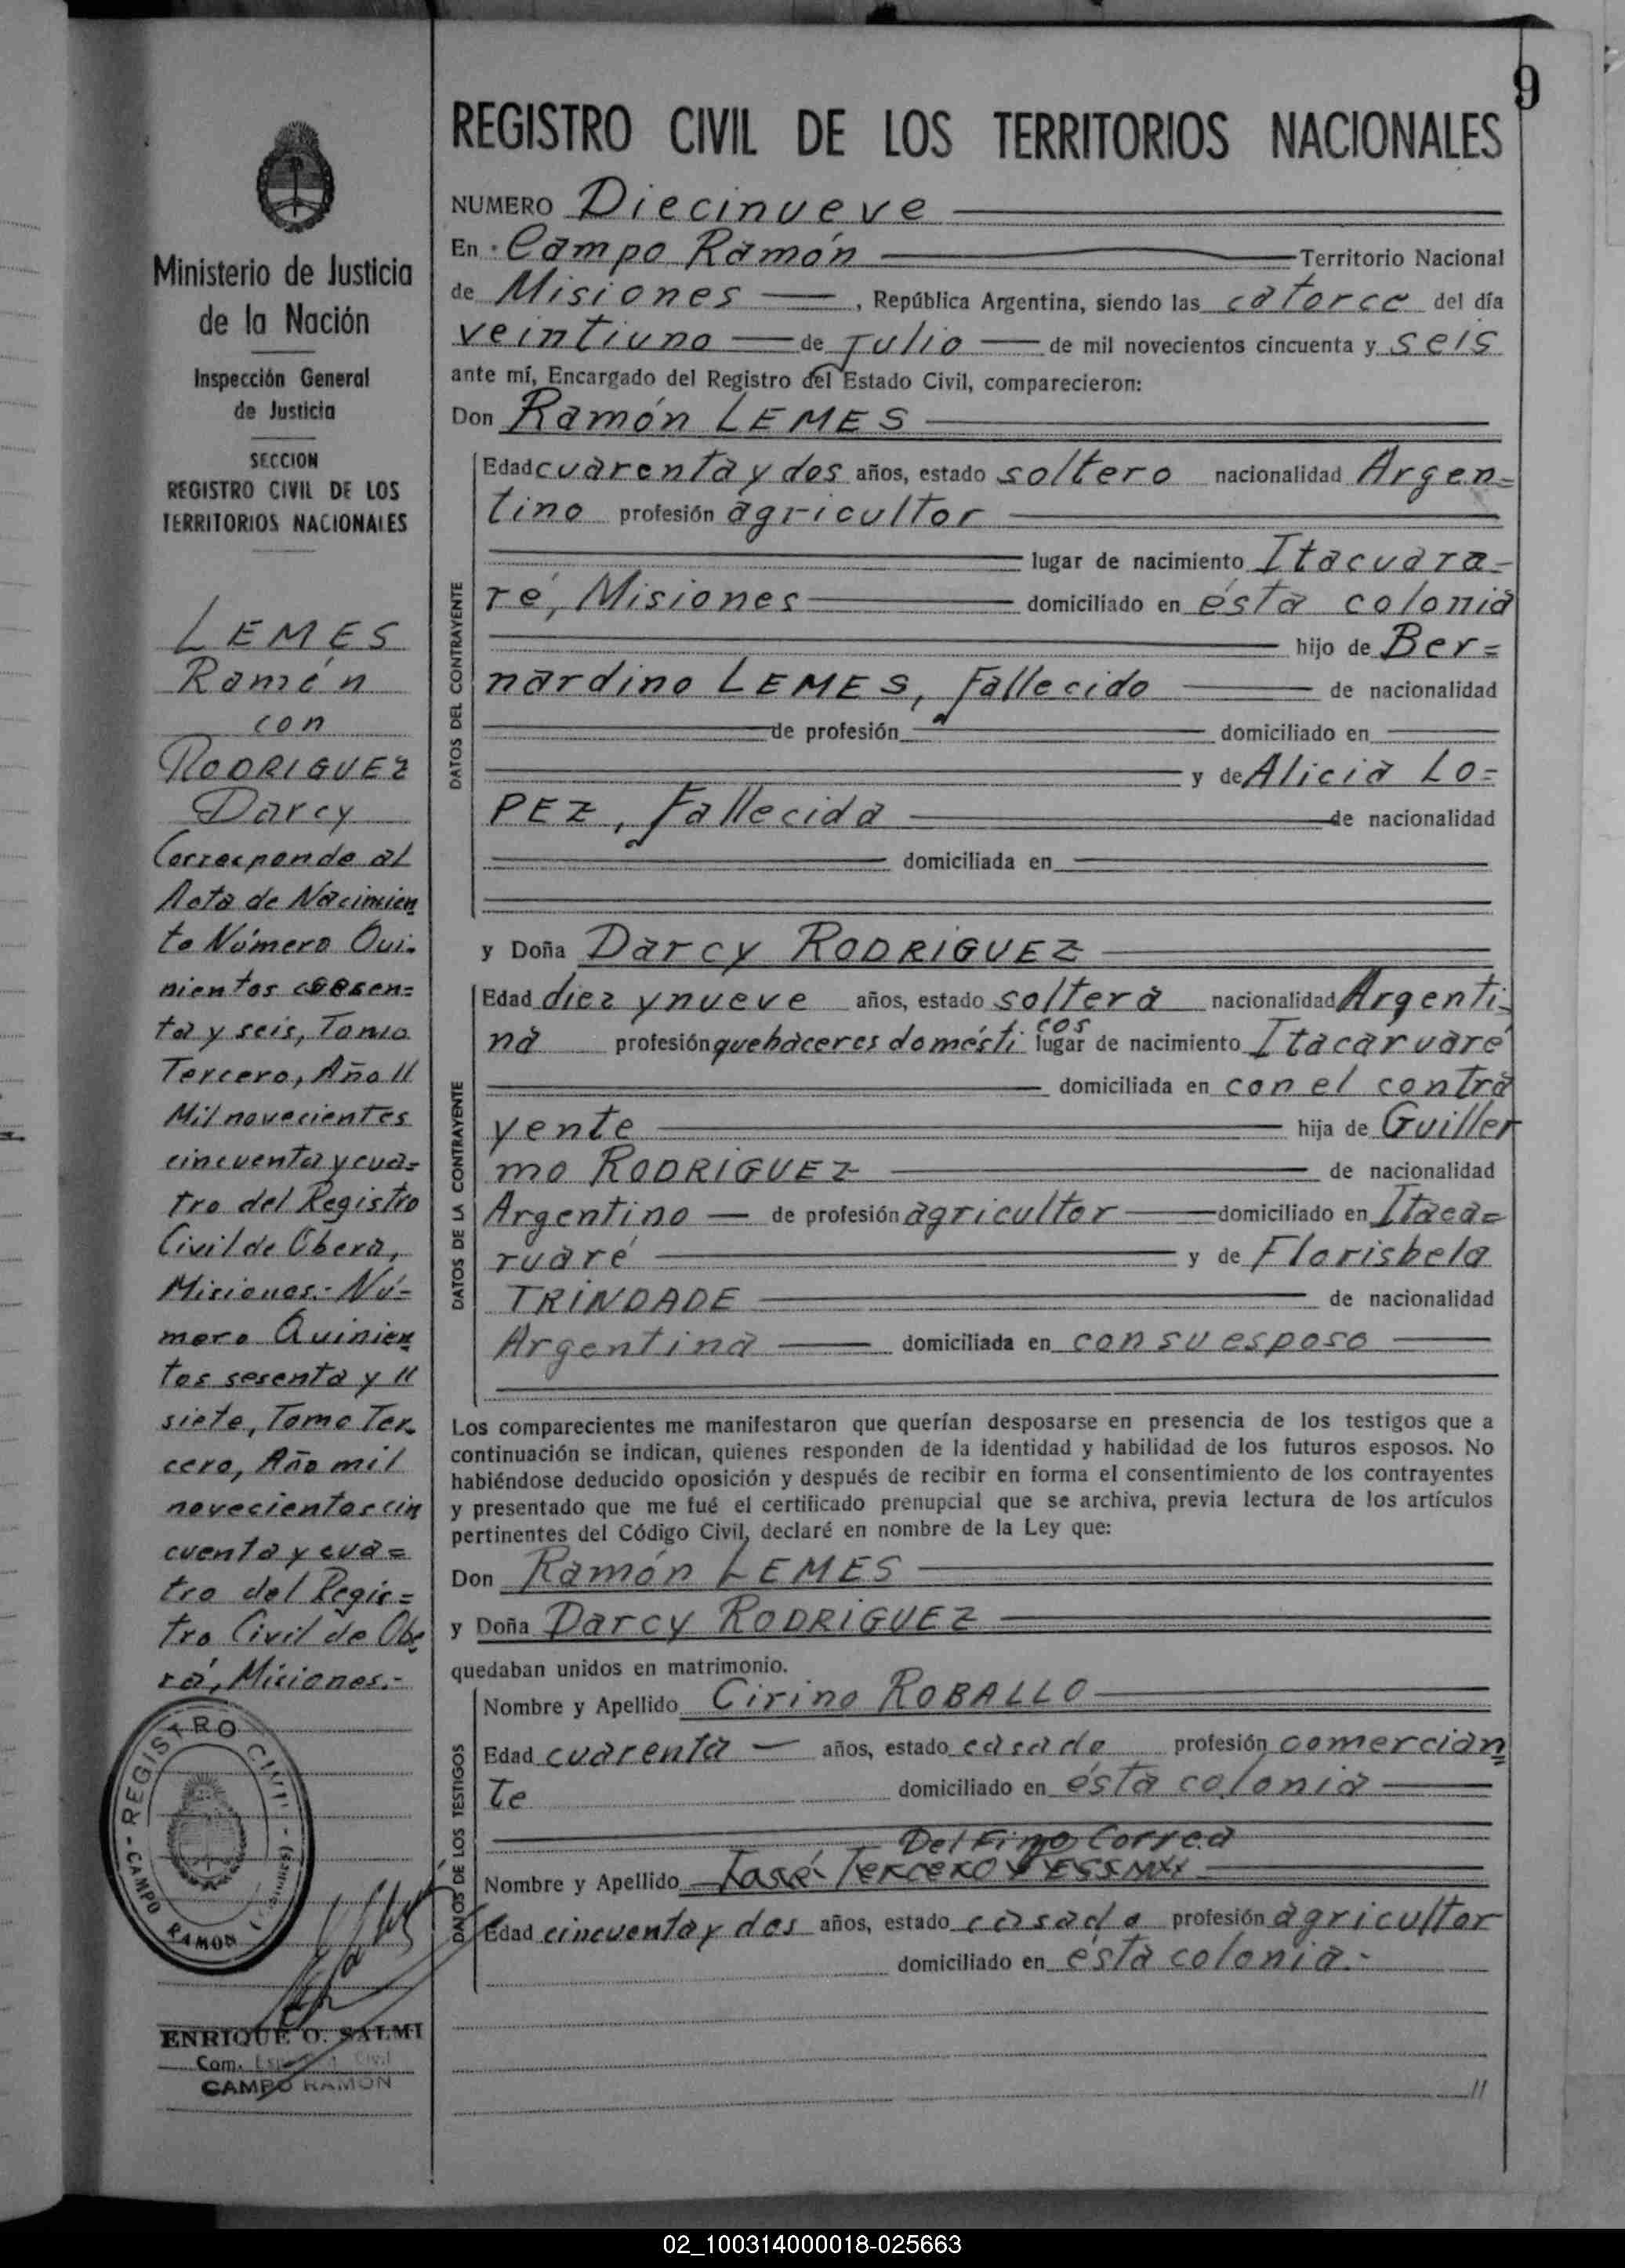 9
REGISTRO CIVIL DE LOS TERRITORIOS NACIONALES
Ministerio de Justicia
de la Nación
Inspección General
de Justicia
SECCION
REGISTRO CIVIL DE LOS
TERRITORIOS NACIONALES
LEMES
Ramón
con
RODRIGUEZ
Darcy
Corresponde al
Acta de Nacimien
to Número Qui-
nientos sesen=
ta y seis, Tomo
Tercero, Año //
Mil novecientos
cincuenta y cua=
tro del Registro
Civil de Obera,
Misiones.- Nú-
mero Quinien
tos sesenta y //
siete, Tomo Ter
cero, Año mil
novecientos cin
cuenta y cua=
tro del Regis=
tro Civil de Obe
rá, Misiones.-
REGISTRO CIVIL
CAMPO RAMON
ENRIQUE O. SALMI
Com. Civil
CAMPO RAMON
NUMERO Diecinueve
En Campo Ramón Territorio Nacional
de Misiones , República Argentina, siendo las catorce del día
veintiuno de Julio de mil novecientos cincuenta y seis
ante mí, Encargado del Registro del Estado Civil, comparecieron:
Don Ramón LEMES
DATOS DEL CONTRAYENTE
Edad cuarenta y dos años, estado soltero nacionalidad Argen=
tino profesión agricultor
lugar de nacimiento Itacuara=
ré, Misiones domiciliado en ésta colonia
hijo de Ber=
nardino LEMES, Fallecido de nacionalidad
de profesión domiciliado en
y de Alicia LO=
PEZ, Fallecida de nacionalidad
domiciliada en
y Doña Darcy RODRIGUEZ
DATOS DE LA CONTRAYENTE
Edad diez y nueve años, estado soltera nacionalidad Argenti=
na profesión quehaceres domésticos lugar de nacimiento Itacaruaré
domiciliada en con el contra
yente hija de Guiller
mo RODRIGUEZ de nacionalidad
Argentino de profesión agricultor domiciliado en Itaca=
ruaré y de Florisbela
TRINDADE de nacionalidad
Argentina domiciliada en con su esposo
Los comparecientes me manifestaron que querían desposarse en presencia de los testigos que a
continuación se indican, quienes responden de la identidad y habilidad de los futuros esposos. No
habiéndose deducido oposición y después de recibir en forma el consentimiento de los contrayentes
y presentado que me fué el certificado prenupcial que se archiva, previa lectura de los artículos
pertinentes del Código Civil, declaré en nombre de la Ley que:
Don Ramón LEMES
y Doña Darcy RODRIGUEZ
quedaban unidos en matrimonio.
DATOS DE LOS TESTIGOS
Nombre y Apellido Cirino ROBALLO
Edad cuarenta años, estado casado profesión comercian
te domiciliado en ésta colonia
Delfino Correa
Nombre y Apellido José
Edad cincuenta y dos años, estado casado profesión agricultor
domiciliado en ésta colonia.-
//
02_100314000018-025663